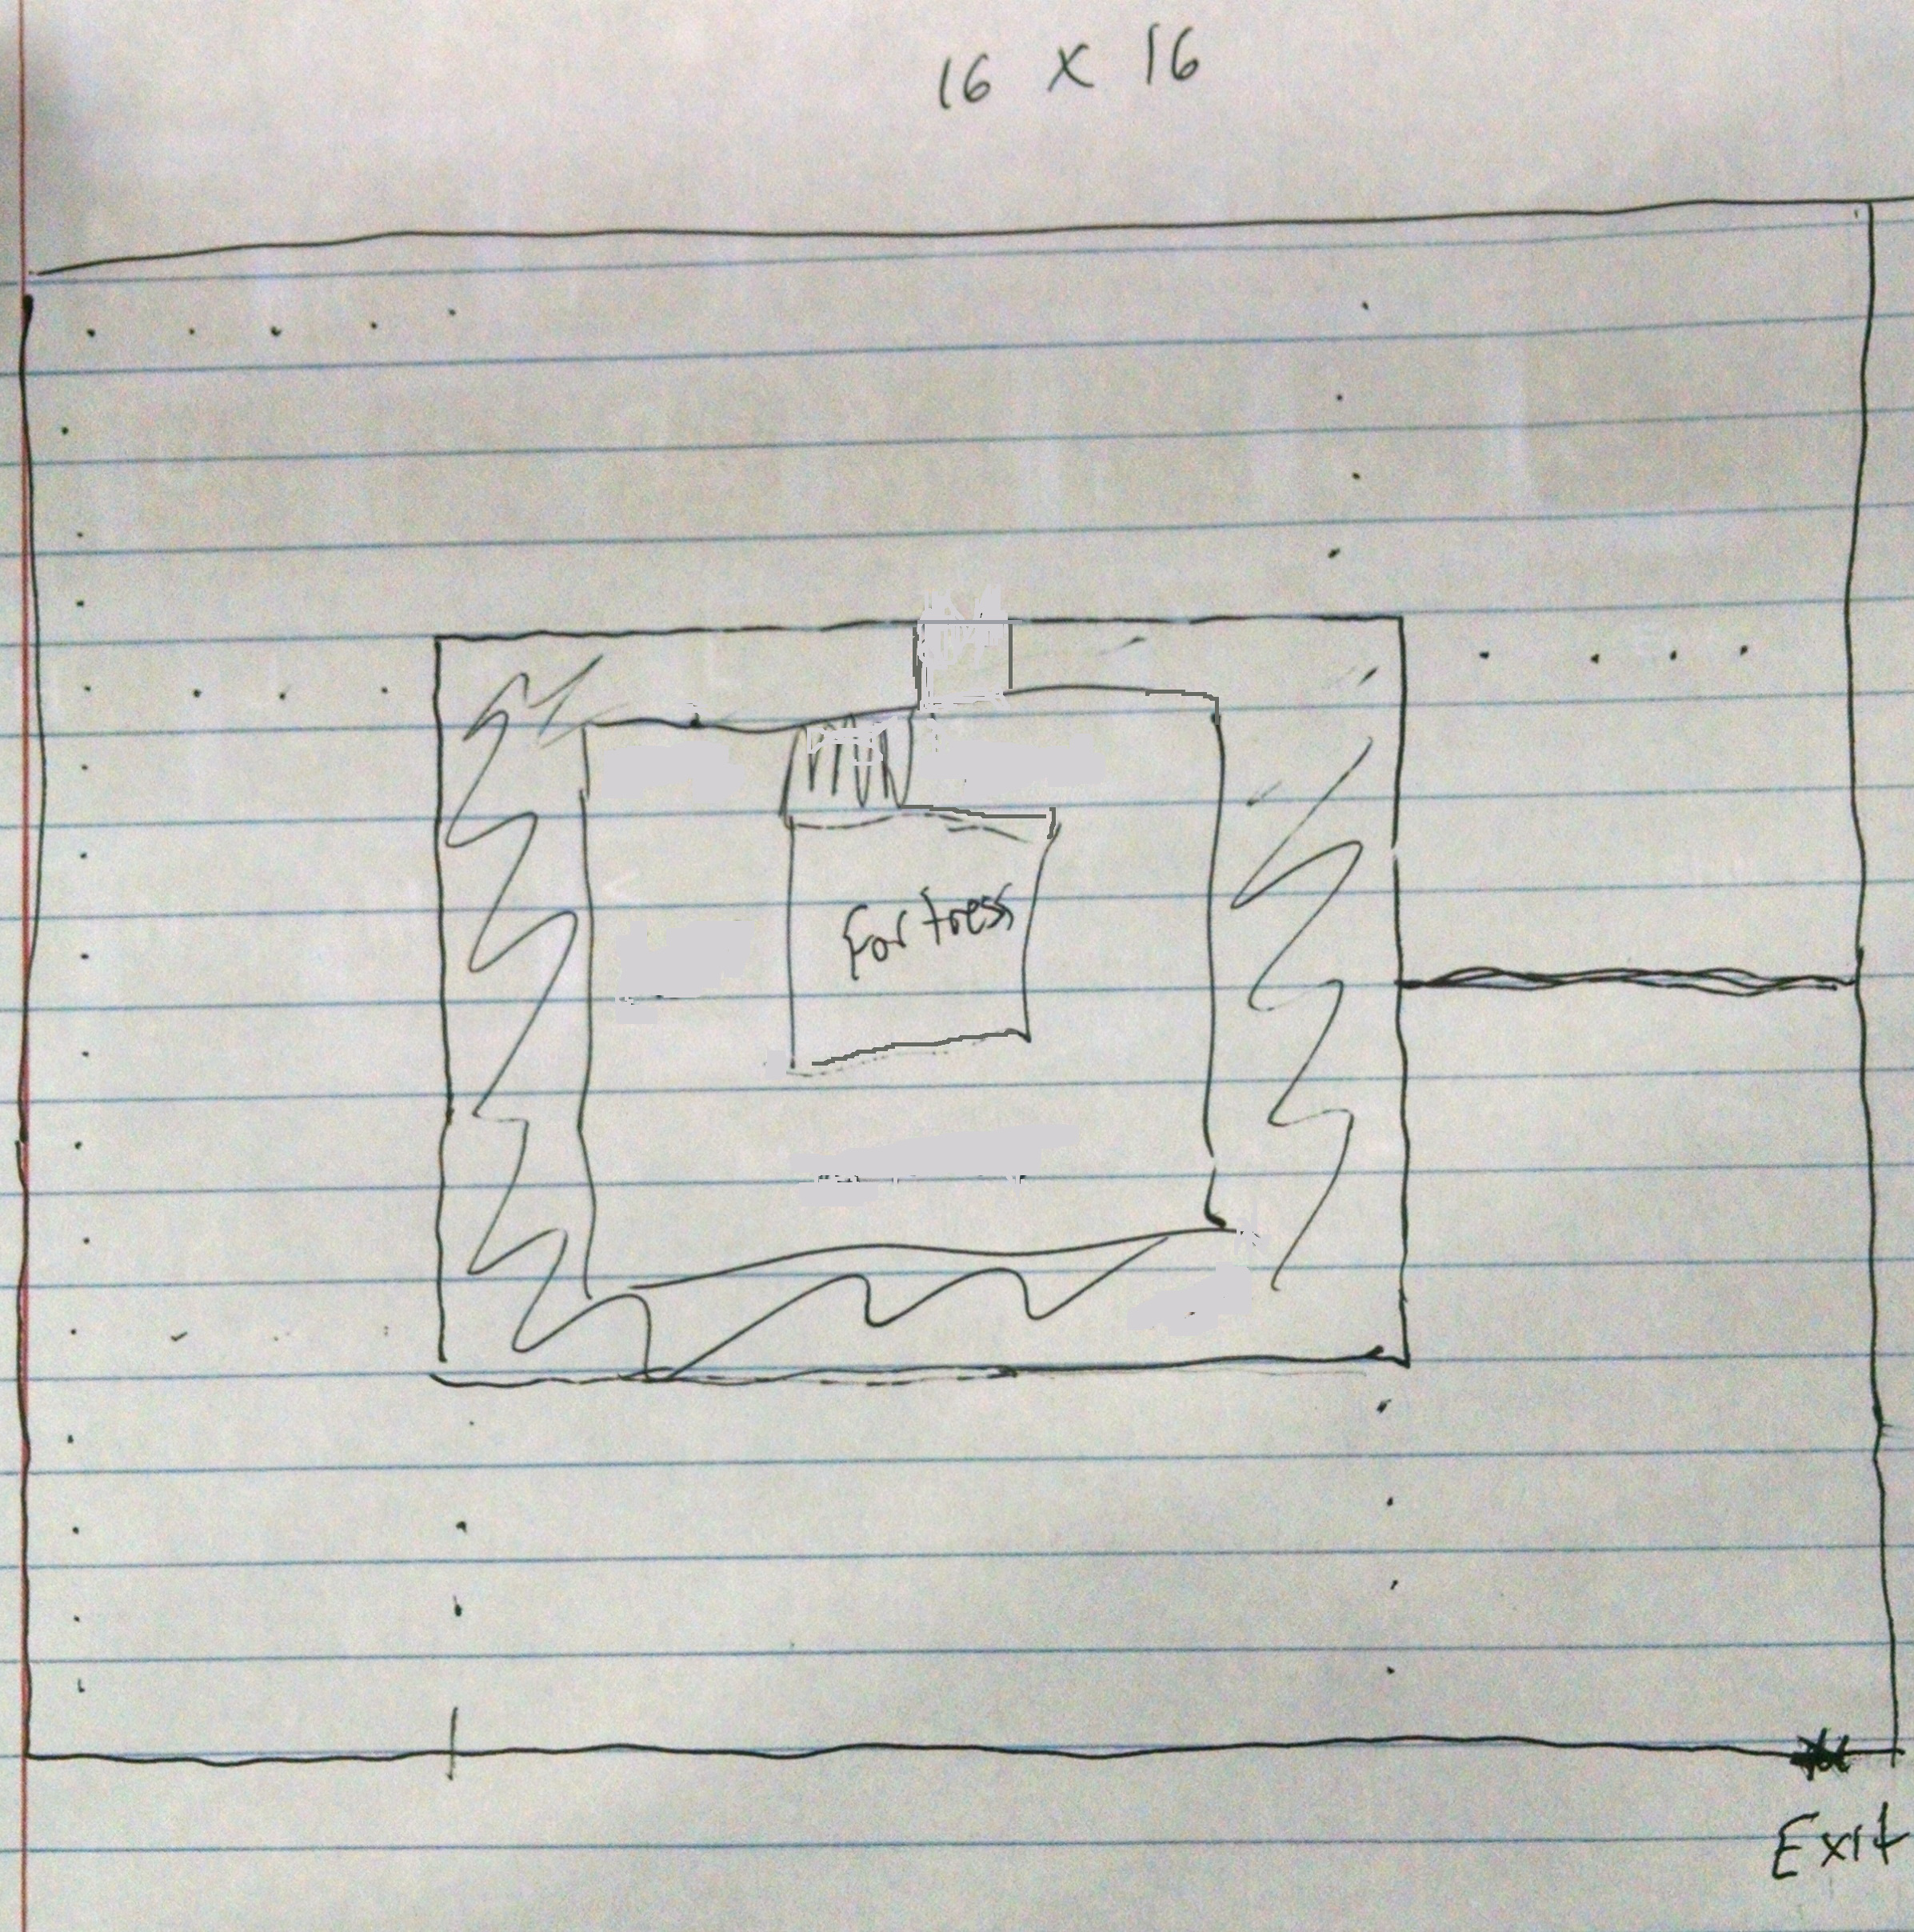 16 x 16
Fortress
Exit